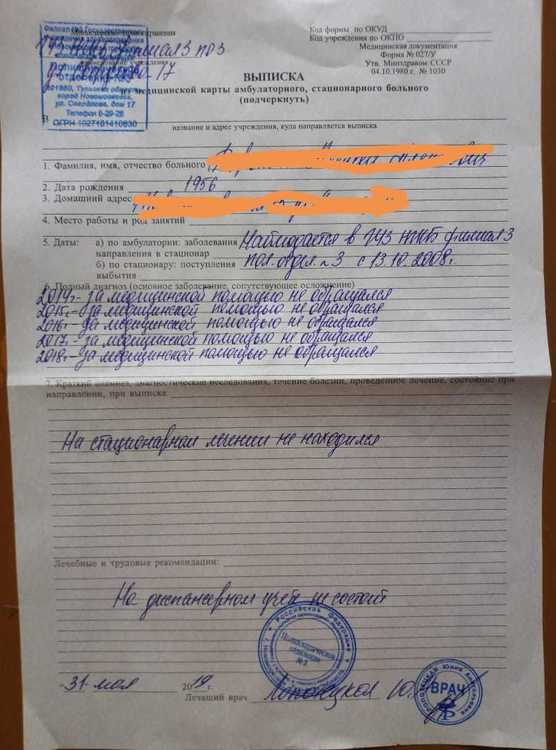 Код формы по ОКУД
Код учреждения по ОКПО
Медицинская документация
Форма № 027/У
Утв. Минздравом СССР
04.10.1980 г. № 1030
город Новомосковск,
ул. Свердлова, дом 17
Телефон 6-29-28
ВЫПИСКА
из медицинской карты амбулаторного, стационарного больного
(подчеркнуть)
В
название и адрес учреждения, куда направляется выписка
1. Фамилия, имя, отчество больного
2. Дата рождения 1956
3. Домашний адрес
4. Место работы и род занятий
5. Даты: а) по амбулатории: заболевания Наблюдается в ГУЗ НГКБ филиал 3
направления в стационар
б) по стационару: поступления пол. отдел №3 с 13.10.2008г.
выбытия
6. Полный диагноз (основное заболевание, сопутствующее осложнение)
2014г.- За медицинской помощью не обращался
2015г.- За медицинской помощью не обращался
2016г.- За медицинской помощью не обращался
2017г.- За медицинской помощью не обращался
2018г.- За медицинской помощью не обращался
7. Краткий анамнез, диагностические исследования, течение болезни, проведенное лечение, состояние при
направлении, при выписке
На стационарном лечении не находился
Лечебные и трудовые рекомендации:
На диспансерном учёте не состоит
31 мая 2019 г.
Лечащий врач
ВРАЧ